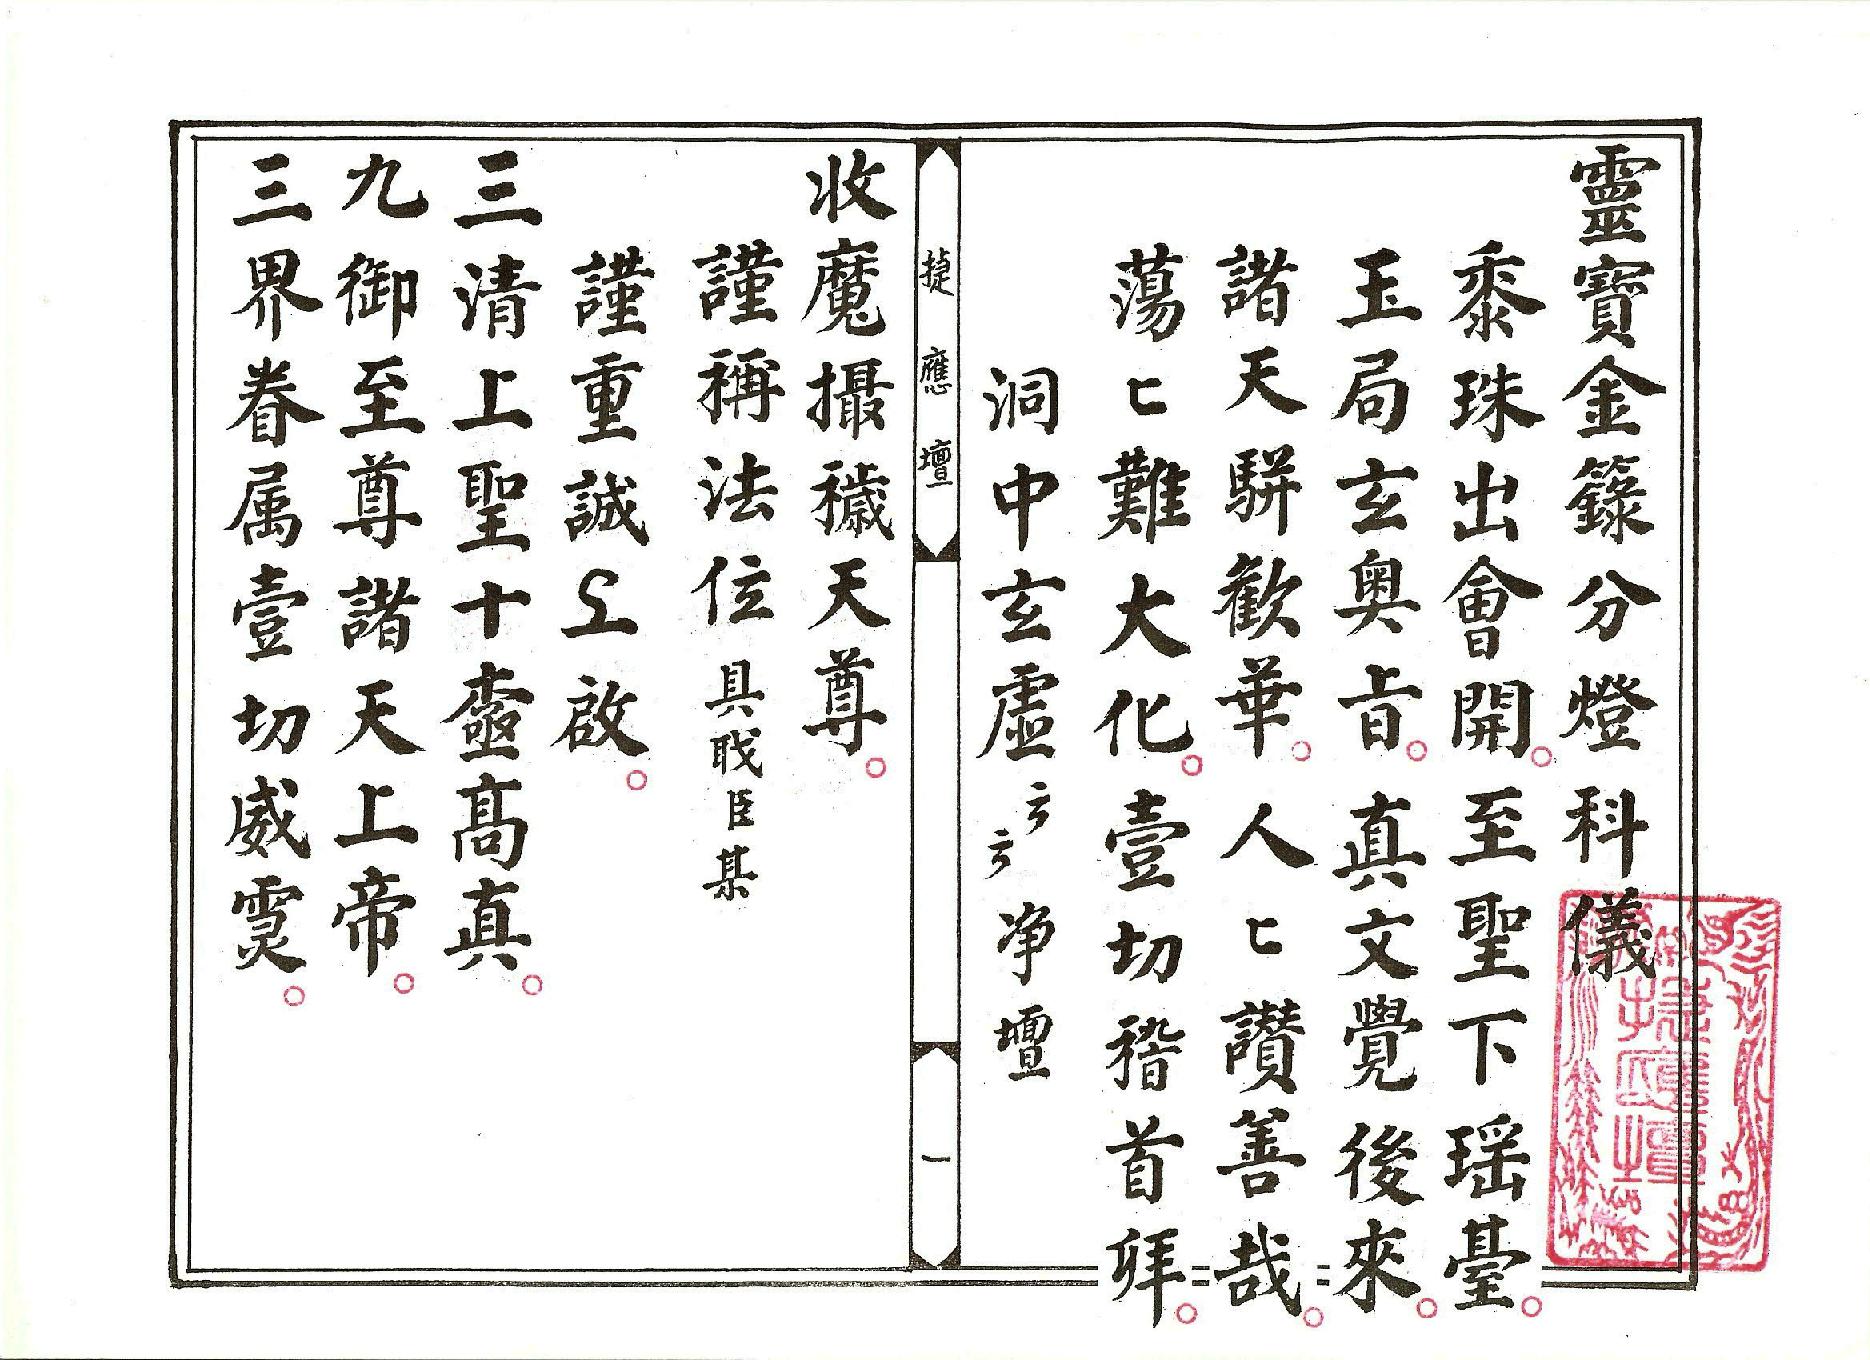 靈寶金籙分燈科儀
黍珠出會開至聖下瑶臺
玉局玄奥㫖真文覺後來
諸天駢歡華人匕讃善哉
蕩匕難大化壹切稽首拜
洞中玄虛云云净壇
捷應壇
一
收魔攝穢天尊
謹稱法位具職臣某
謹重誠上啟
三清上聖十𤫊髙真
九御至尊諸天上帝
三界眷属壹切威霊
捷應壇